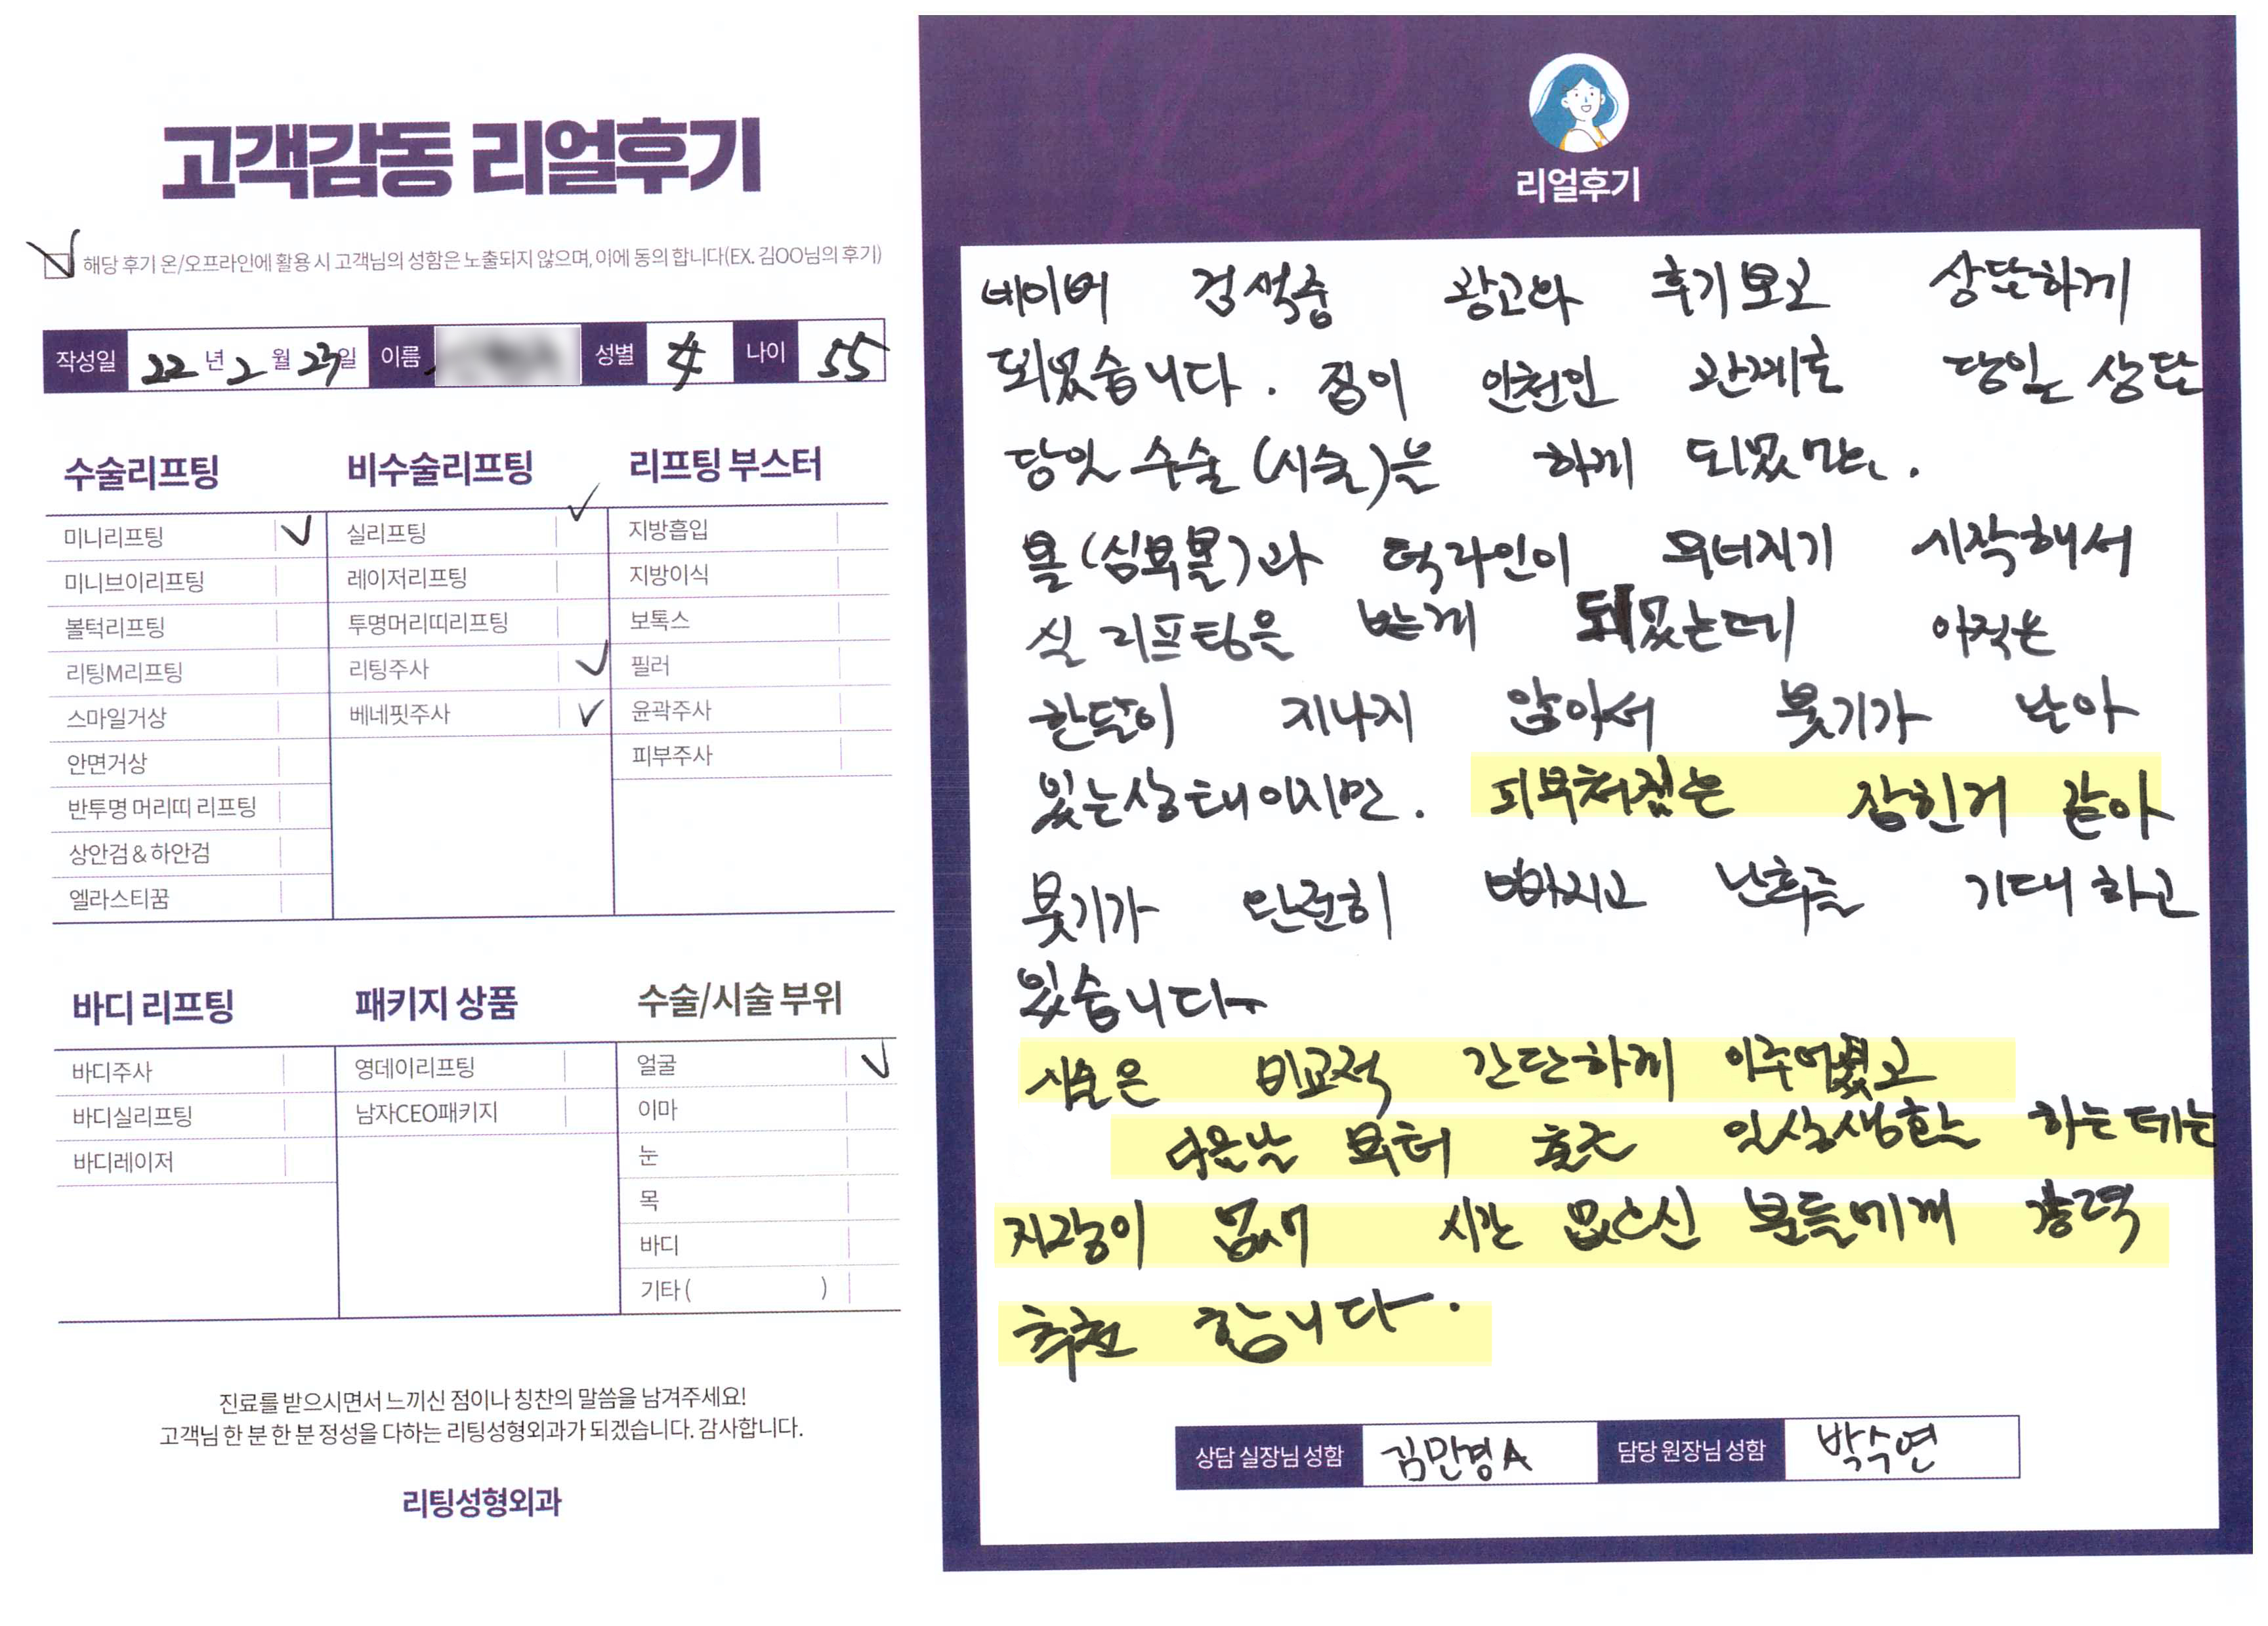 고객감동 리얼후기
해당 후기 온/오프라인에 활용 시 고객님의 성함은 노출되지 않으며, 이에 동의 합니다(EX. 김OO님의 후기)
작성일 22 년 2 월 23일 이름 성별 여 나이 55
수술리프팅
미니리프팅
미니브이리프팅
볼턱리프팅
리팅M리프팅
스마일거상
안면거상
반투명 머리띠 리프팅
상안검 & 하안검
엘라스티꿈
비수술리프팅
실리프팅
레이저리프팅
투명머리띠리프팅
리팅주사
베네핏주사
리프팅 부스터
지방흡입
지방이식
보톡스
필러
윤곽주사
피부주사
바디 리프팅
바디주사
바디실리프팅
바디레이저
패키지 상품
영데이리프팅
남자CEO패키지
수술/시술 부위
얼굴
이마
눈
목
바디
기타 ( )
진료를 받으시면서 느끼신 점이나 칭찬의 말씀을 남겨주세요!
고객님 한 분 한 분 정성을 다하는 리팅성형외과가 되겠습니다. 감사합니다.
리팅성형외과
리얼후기
네이버 검색중 광고와 후기보고 상담하게
되었습니다. 집이 인천인 관계로 당일 상담
당일 수술(시술)을 하게 되었
볼(심부볼)과 턱라인이 무너지기 시작해서
실 리프팅을 받게 되었는데 아직은
한달이 지나지 않아서 붓기가 남아
있는상태이지만. 피부처짐은 잡힌거 같아
붓기가 완전히 빠지고 난후를 기대 하고
있습니다
시술은 비교적 간단하게 이루어졌고
다음날 부터 출근 일상생활 하는데는
지장이 없어 시간 없으신 분들에게 강력
추천 합니다.
상담 실장님 성함 김민경A 담당 원장님 성함 박수연